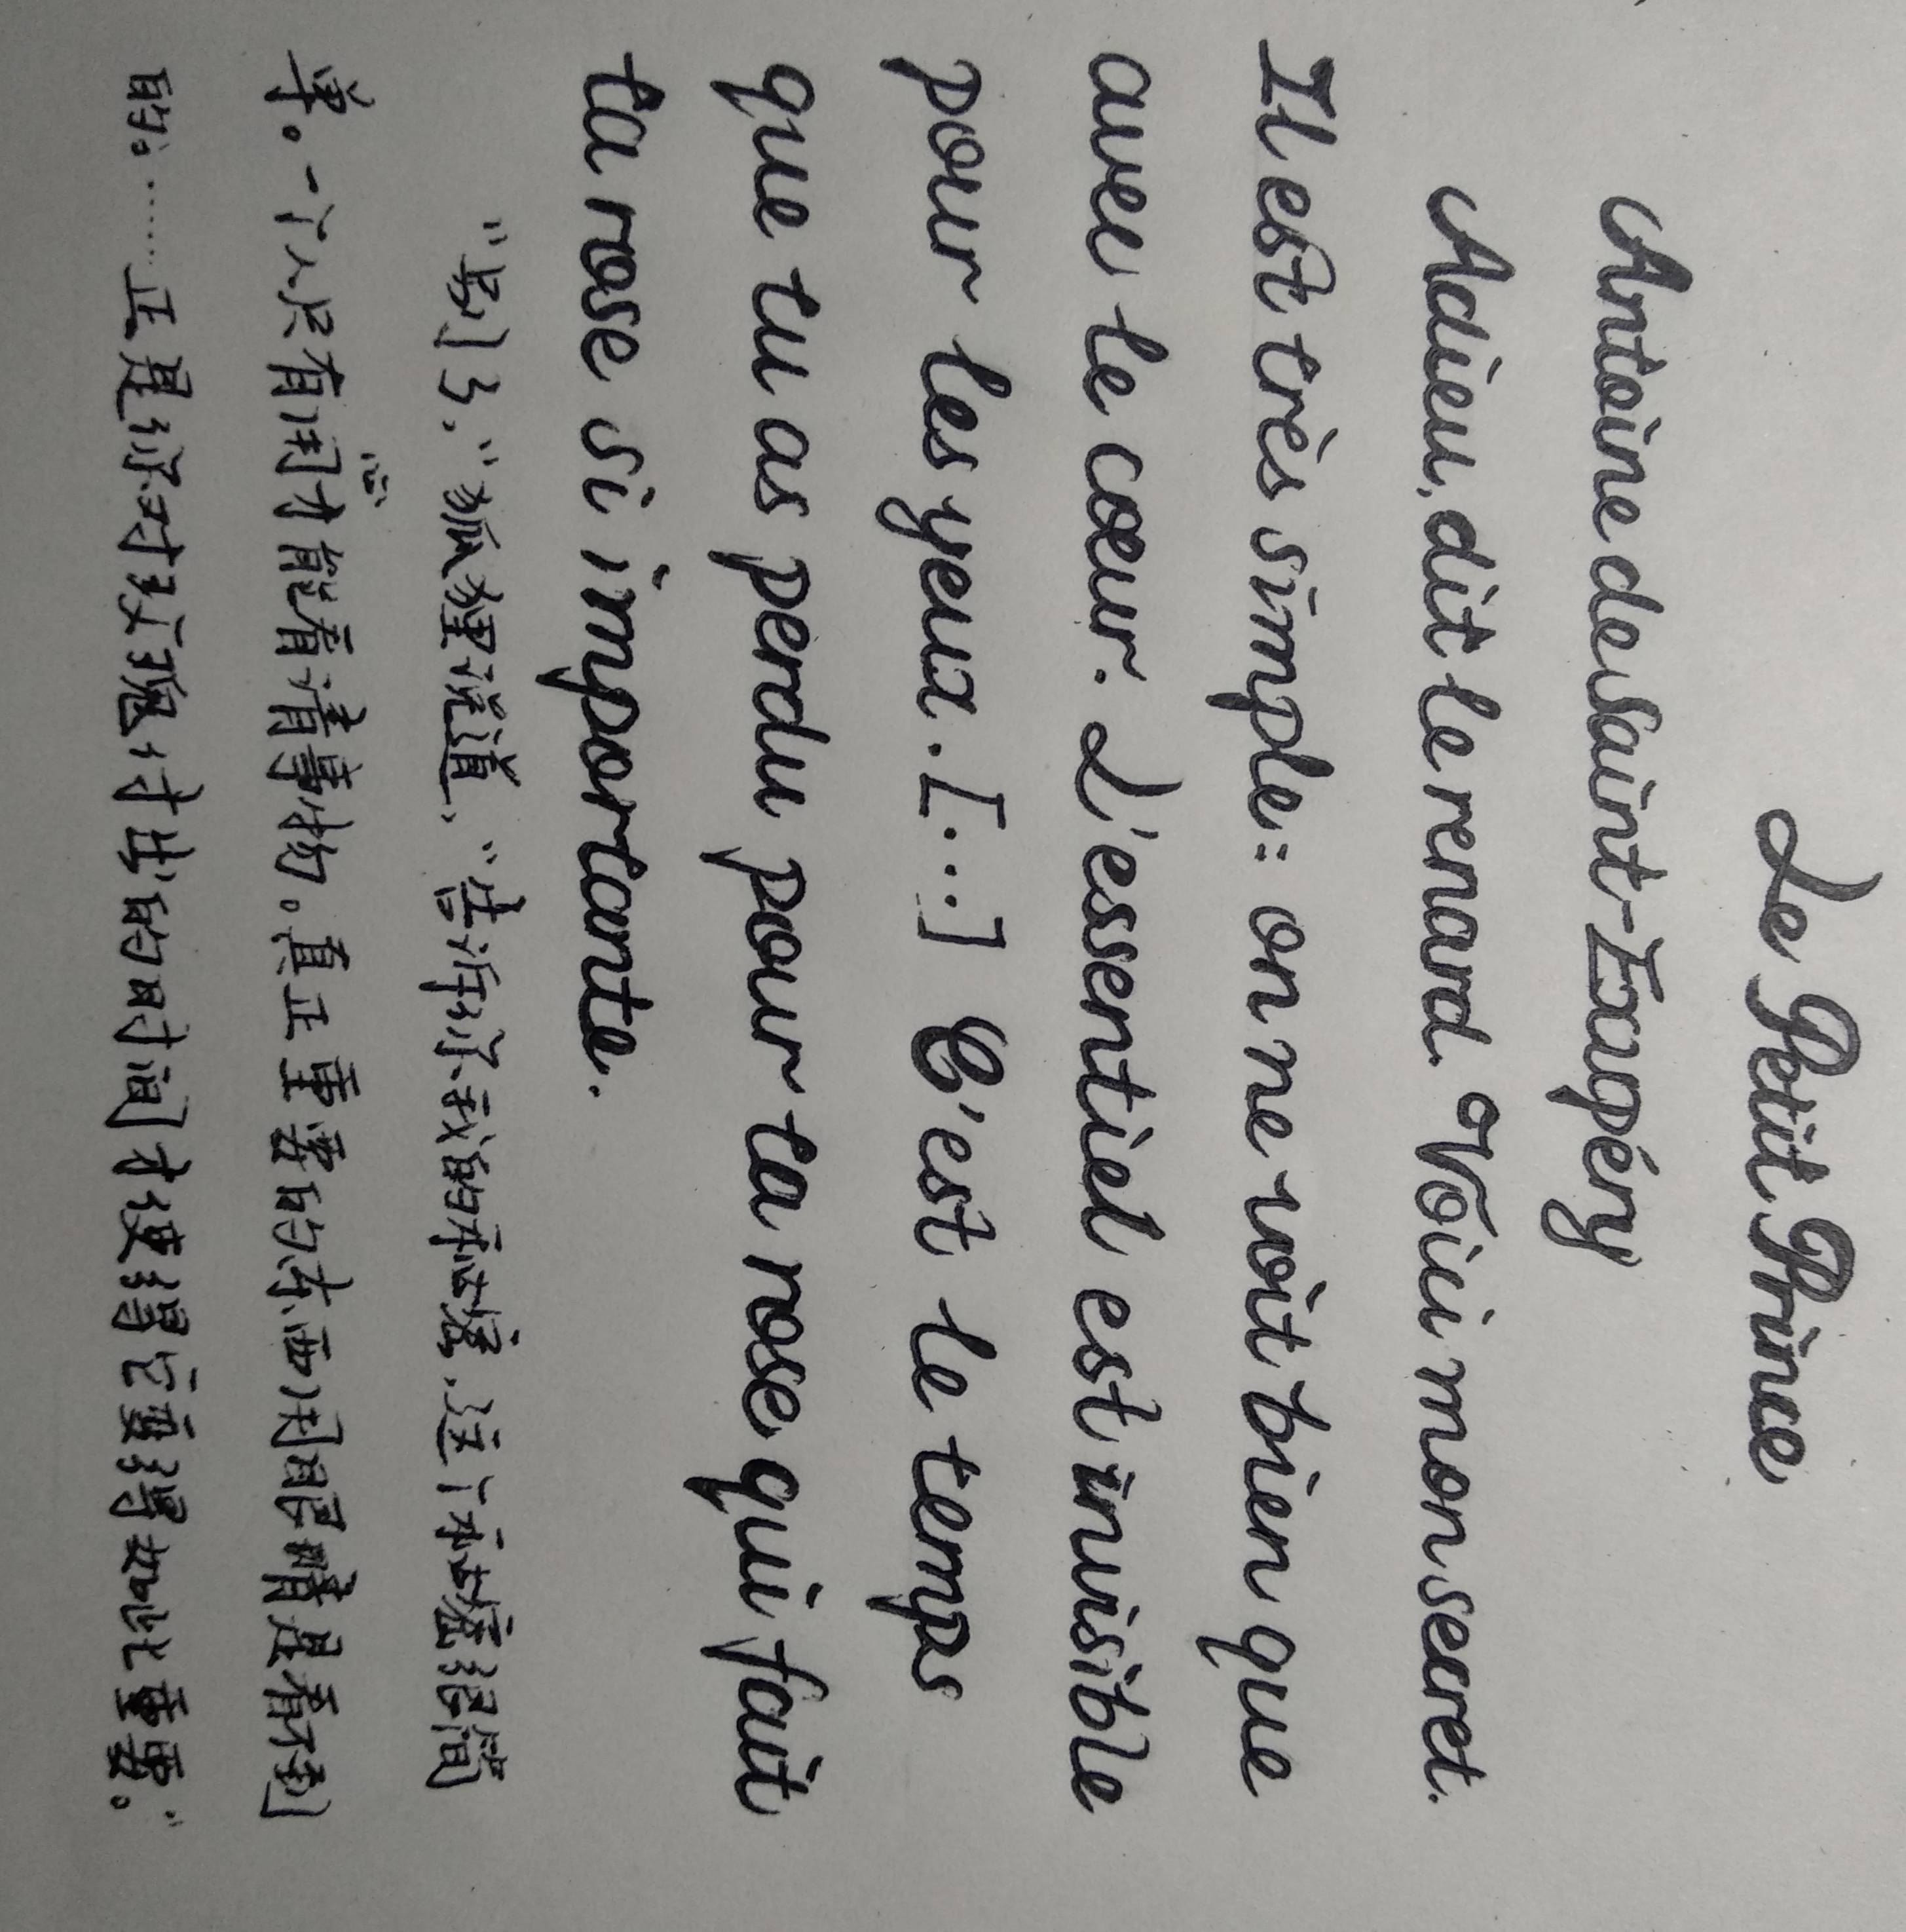 Le Petit Prince
Antoine de Saint-Exupéry
Adieu, dit le renard. Voici mon secret.
Il est très simple: on ne voit bien que
avec le cœur. L'essentiel est invisible
pour les yeux. [...] C'est le temps
que tu as perdu pour ta rose qui fait
ta rose si importante.
“别了，”狐狸说道，“告诉你我的秘密，这个秘密很简
单。一个人只有用心才能看清事物。真正重要的东西用眼睛是看不到
的。……正是你对玫瑰付出的时间才使得它变得如此重要。”